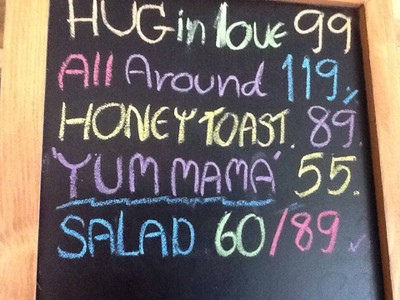 HUG in love 99
All Around 119.-
HONEY TOAST. 89.
'YUM MAMA' 55.
SALAD 60/89